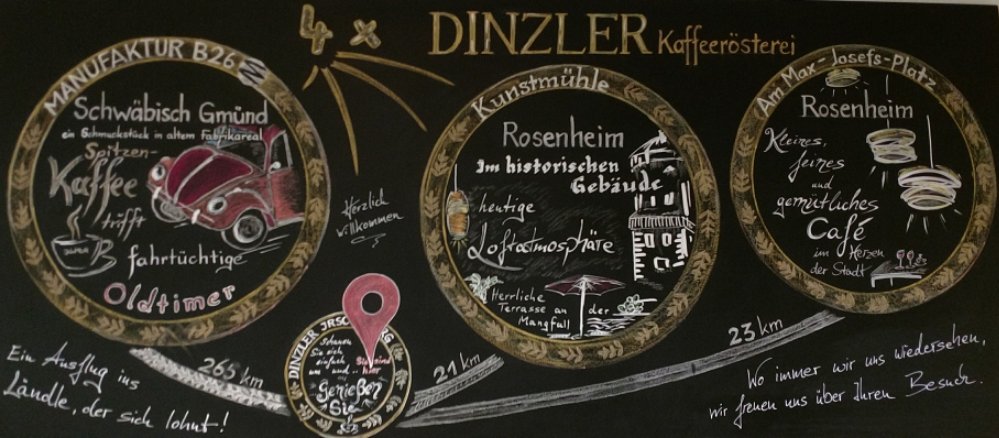 4 x DINZLER Kaffeerösterei
MANUFAKTUR B26
Schwäbisch Gmünd
ein Schmuckstück in altem Fabrikareal
Spitzen-
Kaffee
trifft
fahrtüchtige
Oldtimer
Herzlich
willkommen
Kunstmühle
Rosenheim
Im historischen
Gebäude
heutige
Loftatmosphäre
Herrliche
Terrasse an der
Mangfall
Am Max-Josefs-Platz
Rosenheim
Kleines,
feines
und
gemütliches
Café
im Herzen
der Stadt
Ein Ausflug ins
Ländle, der sich lohnt!
265 km
DINZLER
Schauen
Sie sich
einfach
um und
Sie sind
hier
Genießen
Sie
21 km
23 km
Wo immer wir uns wiedersehen,
wir freuen uns über Ihren Besuch.